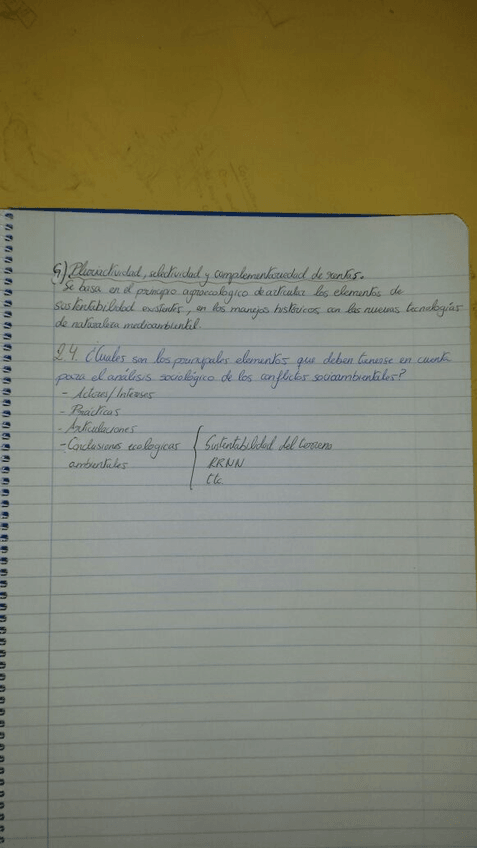 G) Pluriactividad, selectividad y complementariedad de rentas.
Se basa en el principio agroecológico de articular los elementos de
sustentabilidad existentes, en los manejos históricos, con las nuevas tecnologías
de naturaleza medioambiental.
24. ¿Cuáles son los principales elementos que deben tenerse en cuenta
para el análisis sociológico de los conflictos socioambientales?
- Actores/Intereses
- Prácticas
- Articulaciones
- Conclusiones ecológicas { Sustentabilidad del terreno
ambientales RRNN
Etc.